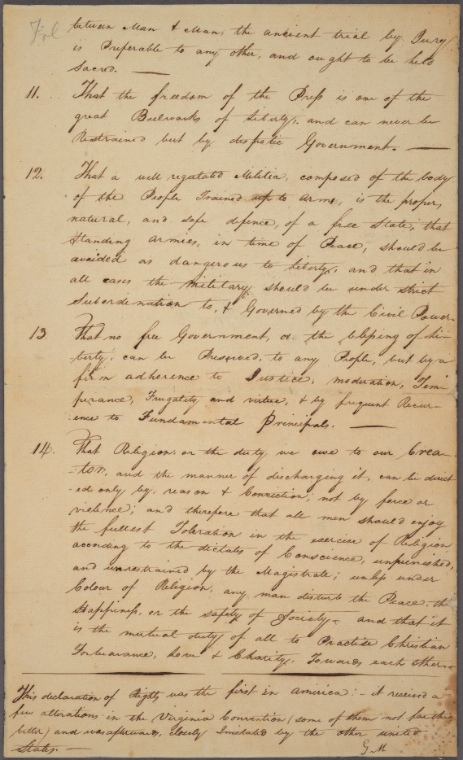 between Man & Man, the ancient trial by Jury
is Preferable to any other, and ought to be held
Sacred. —
11. That the freedom of the Press is one of the
great Bulwarks of Liberty, and can never be
Restrained but by despotic Government. —
12. That a well regulated Militia, composed of the body
of the People Trained up to Arms, is the proper,
natural, and safe defence, of a free State, that
Standing Armies, in time of Peace, should be
avoided as dangerous to Liberty, and that in
all cases the Military should be under strict
Subordination to, & Governed by the Civil Power.
13. That no free Government, or the blessing of Li-
berty, can be Preserved, to any People, but by a
firm adherence to Justice, moderation, Tem-
perance, Frugality and virtue, & by frequent Recur-
ence to Fundamental Principals. —
14. That Religion, or the duty we owe to our Crea-
-tor, and the manner of discharging it, can be direct
-ed only by reason & Conviction, not by force or
violence; and therefore that all men should enjoy
the fullest Toleration in the exercise of Religion
according to the dictates of Conscience, unpunished,
and unrestrained by the Magistrate; unless under
Colour of Religion, any man disturb the Peace, the
Happiness, or the safety of Society - and that it
is the mutual duty of all to Practise Christian
Forbearance, Love & Charity, Towards each other.
This declaration of Rights was the first in america: - it received a
few alterations in the Virginia Convention (some of them not for the
better) and was afterwards, closely Imitated by the other united
States. —
G M